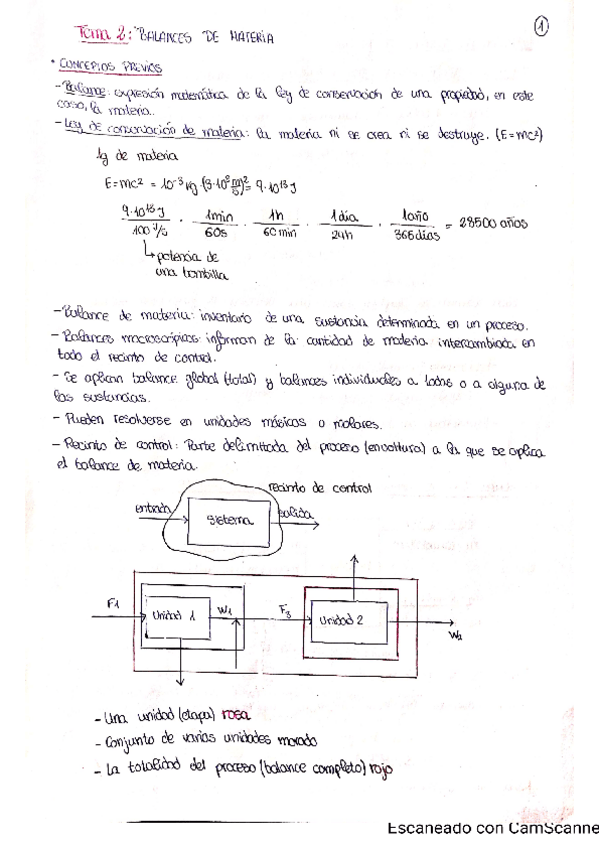 Tema 2: BALANCES DE MATERIA
1
• CONCEPTOS PREVIOS
- Balance: expresión matemática de la ley de conservación de una propiedad, en este
caso, la materia.
- Ley de conservación de materia: la materia ni se crea ni se destruye. (E=mc²)
1g de materia
E=mc² = 10⁻³ kg · (3·10⁸ m/s)² = 9·10¹³ J
9·10¹³ J / 100 J/s · 1min / 60s · 1h / 60 min · 1día / 24h · 1año / 365 días = 28500 años
↳ potencia de
una bombilla
- Balance de materia: inventario de una sustancia determinada en un proceso.
- Balances macroscópicos: informan de la cantidad de materia intercambiada en
todo el recinto de control.
- Se aplican balance global (total) y balances individuales a todas o a alguna de
las sustancias.
- Pueden resolverse en unidades másicas o molares.
- Recinto de control: Parte delimitada del proceso (envoltura) a la que se aplica
el balance de materia.
recinto de control
entrada
sistema
salida
F1
Unidad 1
W1
F3
Unidad 2
W2
- Una unidad (etapa) rosa
- Conjunto de varias unidades morado
- La totalidad del proceso (balance completo) rojo
Escaneado con CamScanne